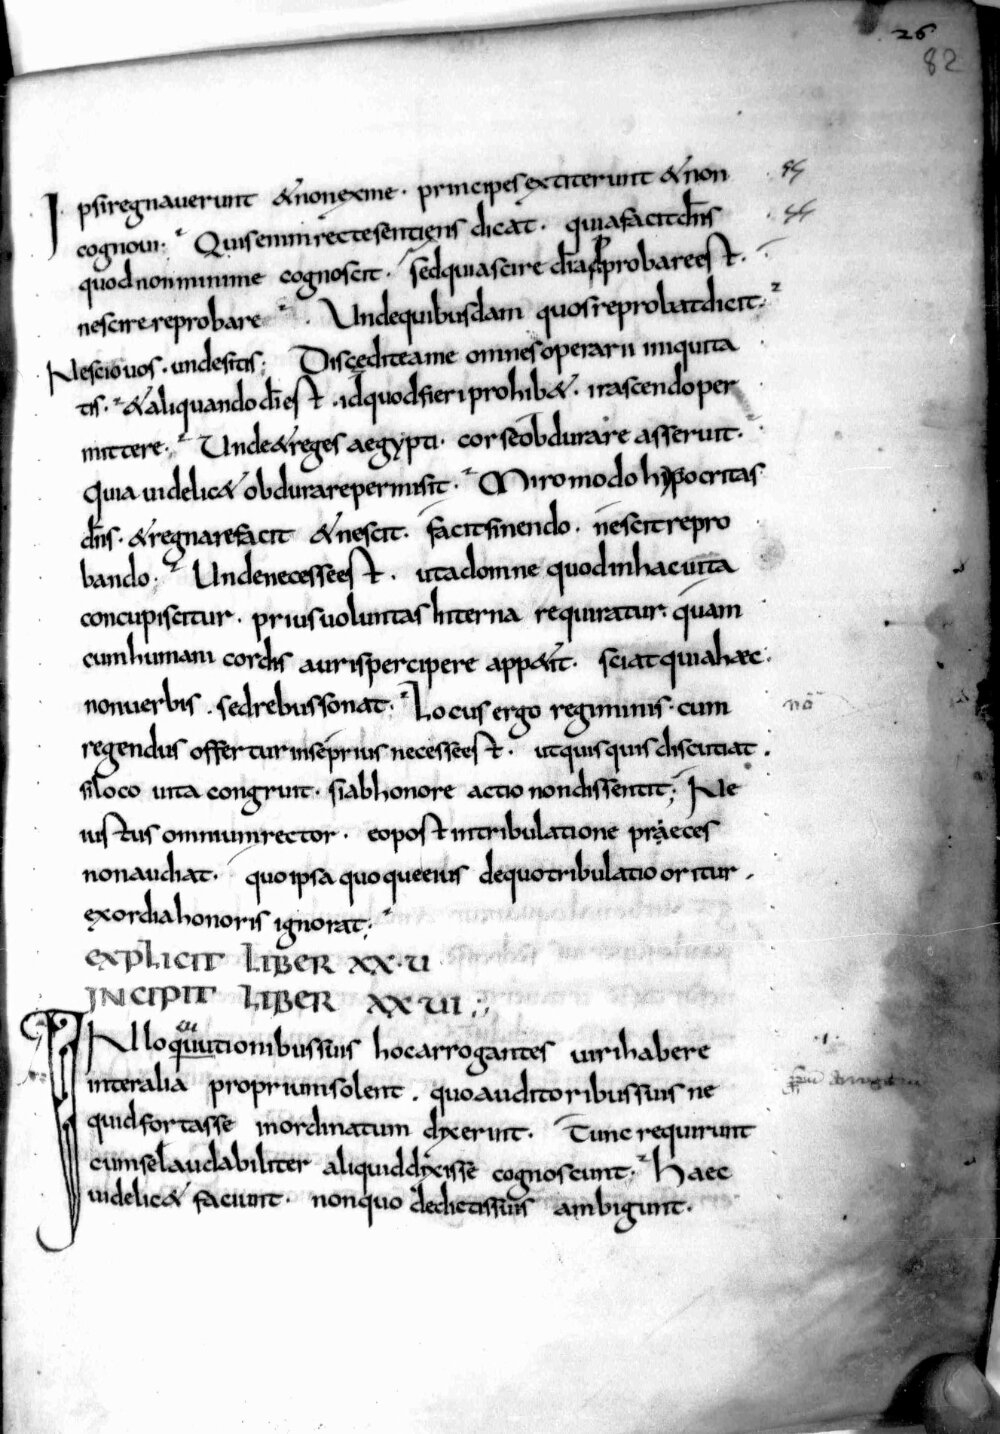 26
82
Ipsi regnauerunt & non ex me · principes extiterunt & non
cognoui · Quis enim recte sentiens dicat · quia facit dn̄s
quod non minime cognoscit · sed quia scire di probare est ·
nescire reprobare · Unde quibusdam quos reprobat dicit ·
Nescio uos · unde sitis ; Discedite a me omnes operarii iniquita
tis · & aliquando d̄i est · id quod fieri prohib& · irascendo per
mittere · Unde & reges aegypti · cor se obdurare asseruit ·
Quia uidelic& obdurare permisit · Miro modo hypocritas
dn̄s · & regnare facit & nescit · facit sinendo · nescit repro
bando · Unde necesse est · ut ad omne quod in hac uita
concupiscitur · prius uoluntas interna requiratur · quam
cum humani cordis auris percipere app&it · sciat quia haec
non uerbis · sed rebus sonat · Locus ergo regiminis · cum
regendus offertur in se prius necesse est · ut quisquis discutiat ·
si loco uita congruit · si ab honore actio non dissentit ; Ne
iustus omnium rector · eo post in tribulatione praeces
non audiat · quo ipsa quoque eius de quo tribulatio oritur ·
exordia honoris ignorat ;
EXPLICIT LIBER XX·U
INCIPIT LIBER XX·UI ;
IN lloquutionibus suis hoc arrogantes uiri habere
inter alia proprium solent · quo auditoribus suis ne
quid fortasse inordinatum dixerint · Tunc requirunt
cum se laudabiliter aliquid dixisse cognoscunt · Haec
uidelic& faciunt · non quo de dictis suis ambigunt ·